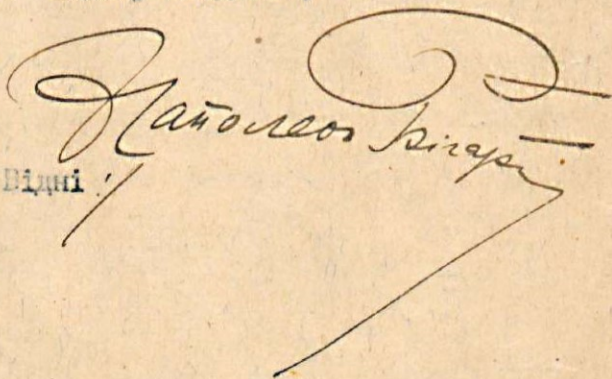 Наполеон
Відні :